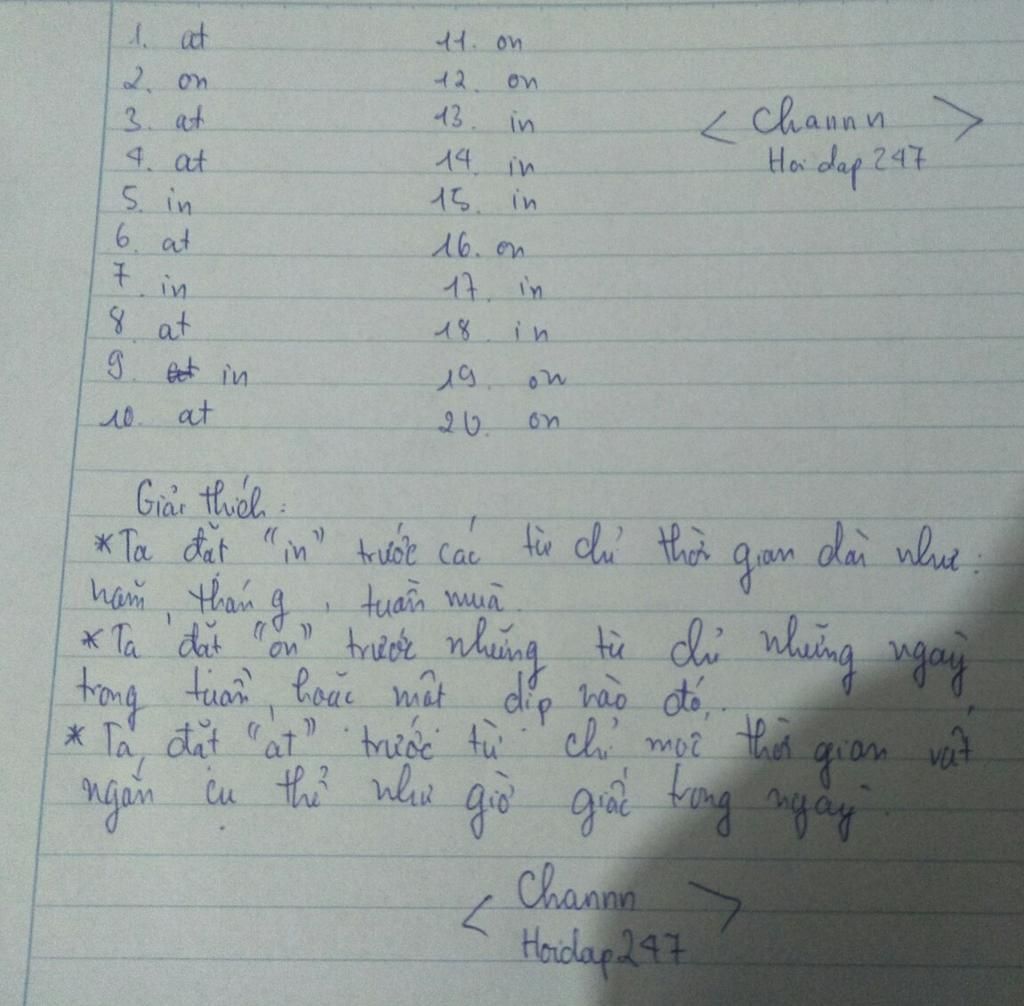 1. at
2. on
3. at
4. at
5. in
6. at
7. in
8. at
9. in
10. at
11. on
12. on
13. in
14. in
15. in
16. on
17. in
18. in
19. on
20. on
< Channn >
Hoidap247
Giải thích:
*Ta đặt "in" trước các từ chỉ thời gian dài như:
năm, tháng, tuần mùa.
*Ta đặt "on" trước những từ chỉ những ngày
trong tuần, hoặc một dịp nào đó.
*Ta đặt "at" trước từ chỉ thời gian
ngắn cụ thể như giờ giấc trong ngày.
< Channn >
Hoidap247